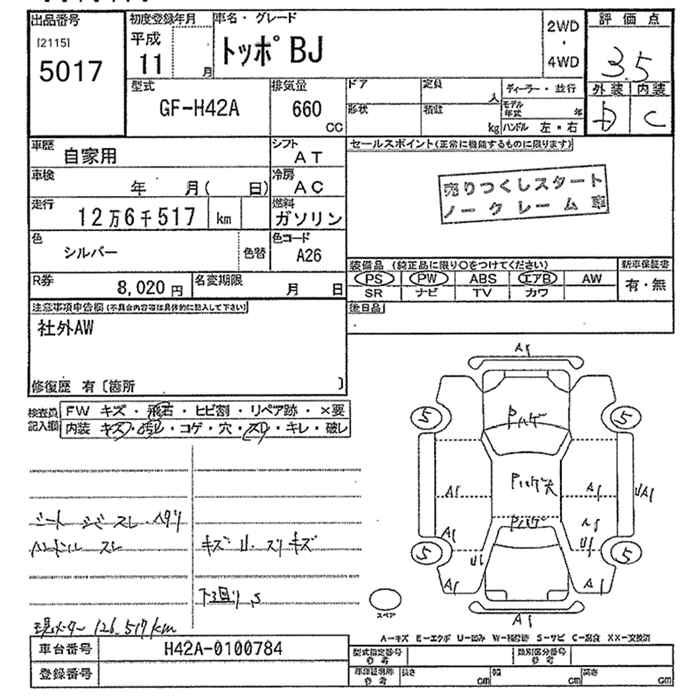 出品番号
[2115]
5017
初度登録年月
平成
11 月
車名・グレード
トッポBJ
2WD
・
4WD
評価点
3.5
外装 内装
D C
型式
GF-H42A
排気量
660
CC
ドア
定員
人
形状
積載
kg
ディーラー・並行
モデル年式 年
ハンドル 左・右
車歴
自家用
シフト
AT
車検
年 月( 日)
冷房
AC
走行
12万6千517 km
燃料
ガソリン
色
シルバー
色替
色コード
A26
R券
8,020円
名変期限
月 日
セールスポイント(正常に機能するものに限ります)
売りつくしスタート
ノークレーム
装備品 (純正品に限り○をつけてください)
新車保証書
PS PW ABS エアB AW
SR ナビ TV カワ
有・無
後日品
注意事項申告欄(不具合内容等は具体的に記入して下さい)
社外AW
修復歴 有〔箇所 〕
検査員記入欄
FW キズ・飛石・ヒビ割・リペア跡・×要
内装 キズ・汚レ・コゲ・穴・スレ・キレ・破レ
シート シミ スレ ヘタリ
ハンドル スレ
キズ U スリキズ
下回り S
現メーター 126,517km
A1
5
5
Pハゲ
Pハゲ大
Pハゲ
A1
A1
UA1
A1
A1
U1
U1
5
5
A1
A1
A1
スペア
A-キズ E-エクボ U-凹み W-補修跡 S-サビ C-腐食 XX-交換済
車台番号
H42A-0100784
登録番号
型式指定番号
参考
類別区分番号
参考
車庫証明用
参考
長さ cm
幅 cm
高さ cm